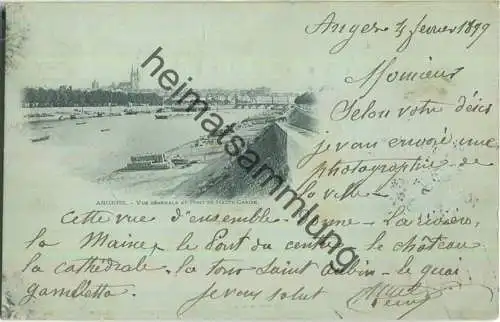 Angers 4 février 1899
Monsieur
Selon votre désir
je vais envoyé une
photographie de
la ville -
ANGERS. - VUE GÉNÉRALE ET PONT DE HAUTE CHAINE
Cette vue d'ensemble donne - La rivière,
la Maine, le Pont du centre - le château
la cathédrale, la tour Saint Aubin - le quai
gambetta. je vous salut
heimatsammlung.de